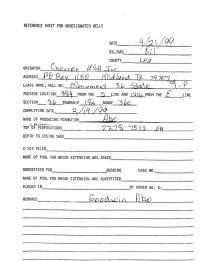 REFERENCE SHEET FOR UNDESIGNATED WELLS
DATE 4/21/99
OIL/GAS Oil
COUNTY Lea
OPERATOR Chevron USA Inc
ADDRESS PO Box 1150 Midland TX 79702
LEASE NAME, WELL NO. Monument 36 State
FOOTAGE LOCATION FROM THE S LINE AND FROM THE E LINE
SECTION 36 TOWNSHIP 19s RANGE 36e
COMPLETION DATE 3/19/99
NAME OF PRODUCING FORMATION Abo
TOP OF PERFORATIONS
DEPTH TO CASING SHOE
C-123 FILED
NAME OF POOL FOR WHICH EXTENSION WAS ASKED
ADVERTISED FOR HEARING CASE NO.
NAME OF POOL FOR WHICH EXTENSION WAS ADVERTISED
PLACED IN BY ORDER NO. R-
REMARKS Goodwin Abo